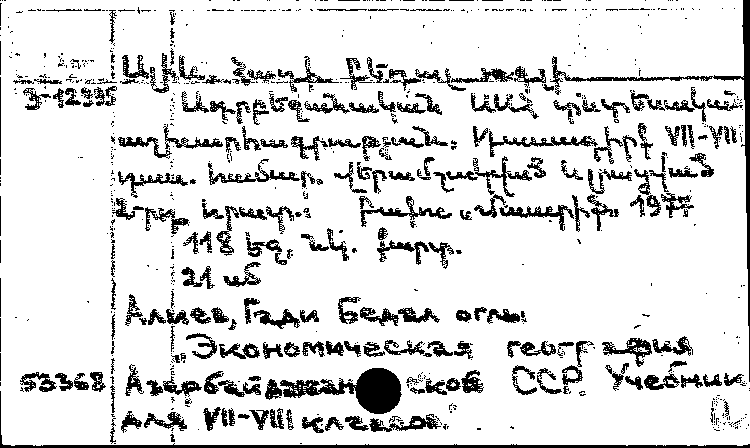 Ալիև, Հադի Բեդալ օղլի
3-12995
Ադրբեջանական ՍՍՀ տնտեսական
աշխարհագրություն: Դասագիրք VII-VIII
դաս. համար. Վերամշակված
2-րդ հրատ.: Բաքու „Մաարիֆ" 1977
118 էջ, նկ. քարտ.
21 սմ
Алиев, Гади Бедал оглы
„Экономическая география
53368 Азербайджанской ССР. Учебник
для VII-VIII классов."